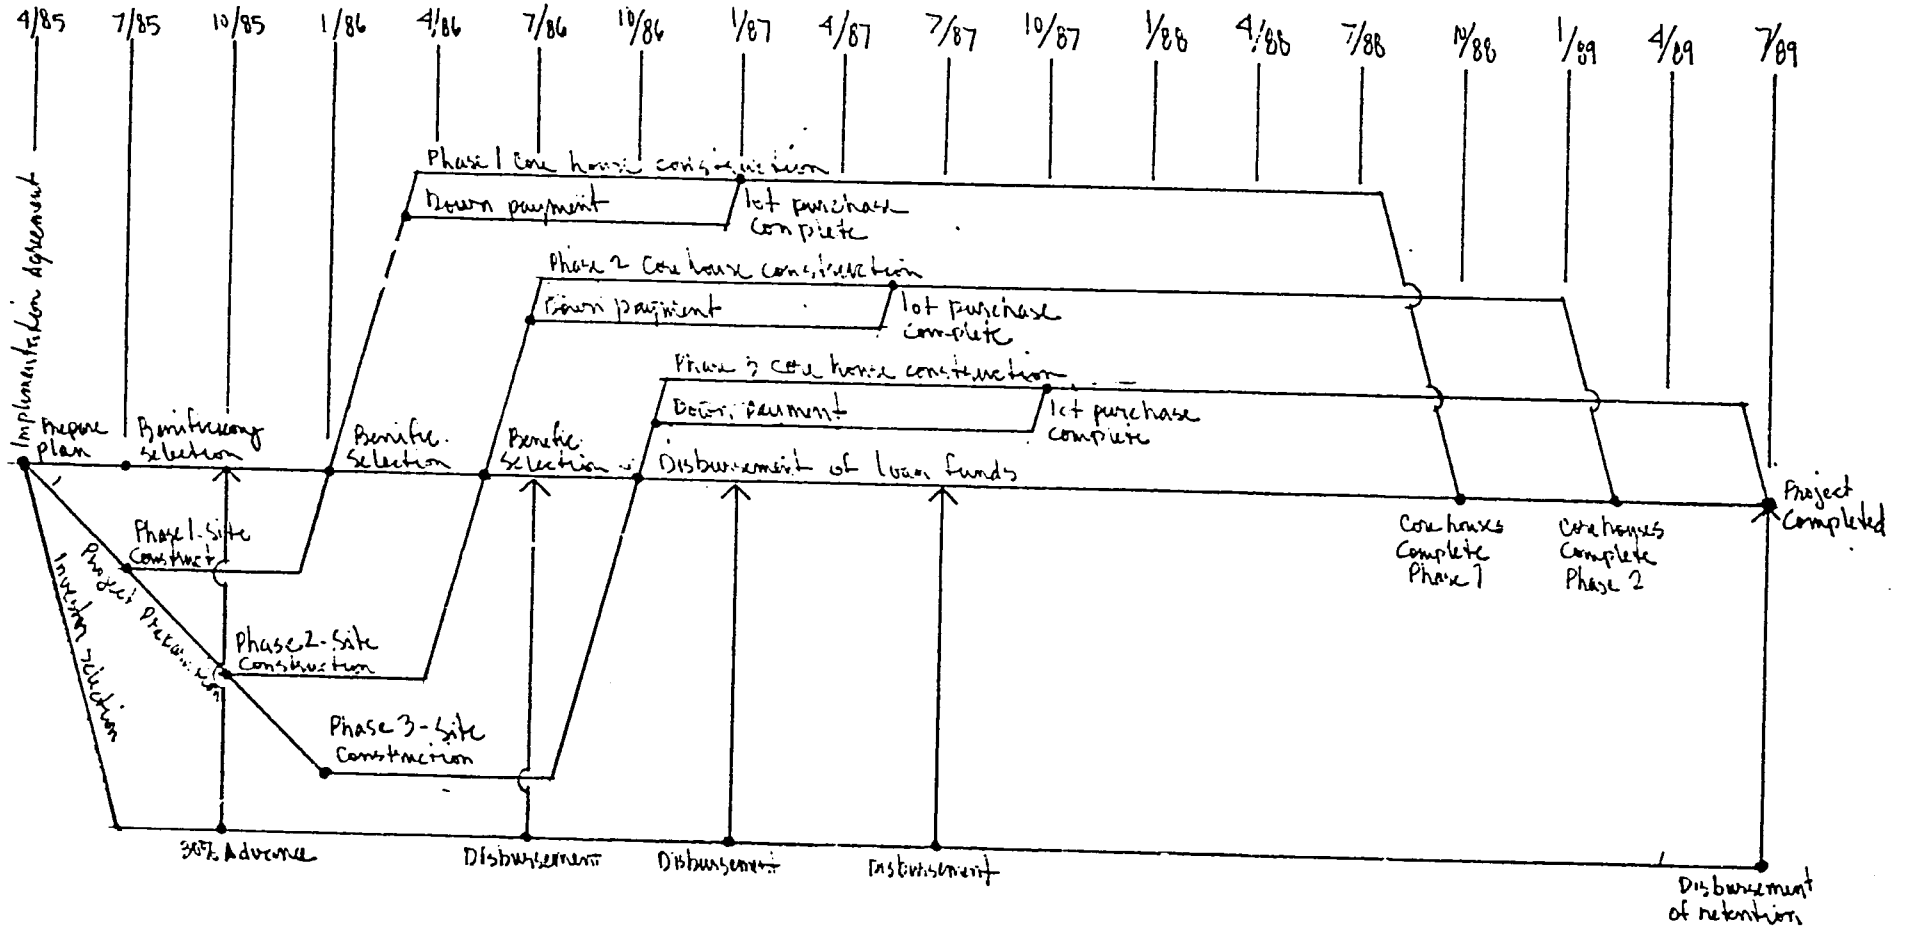 4/85 7/85 10/85 1/86 4/86 7/86 10/86 1/87 4/87 7/87 10/87 1/88 4/88 7/88 10/88 1/89 4/89 7/89
Implementation Agreement
Phase 1 Core house construction
Down payment
lot purchase
complete
Phase 2 Core house construction
Down payment
lot purchase
complete
Phase 3 Core house construction
Down payment
lot purchase
complete
Prepare
plan
Benificeary
selection
Benific.
selection
Benefic.
selection
Disbursement of loan funds
Project
Completed
Core houses
Complete
Phase 1
Core houses
Complete
Phase 2
Phase 1-Site
Construct
Project Preparation
Investor selection
Phase 2-Site
Construction
Phase 3-Site
Construction
30% Advance
Disbursement
Disbursement
Disbursement
Disbursement
of retention